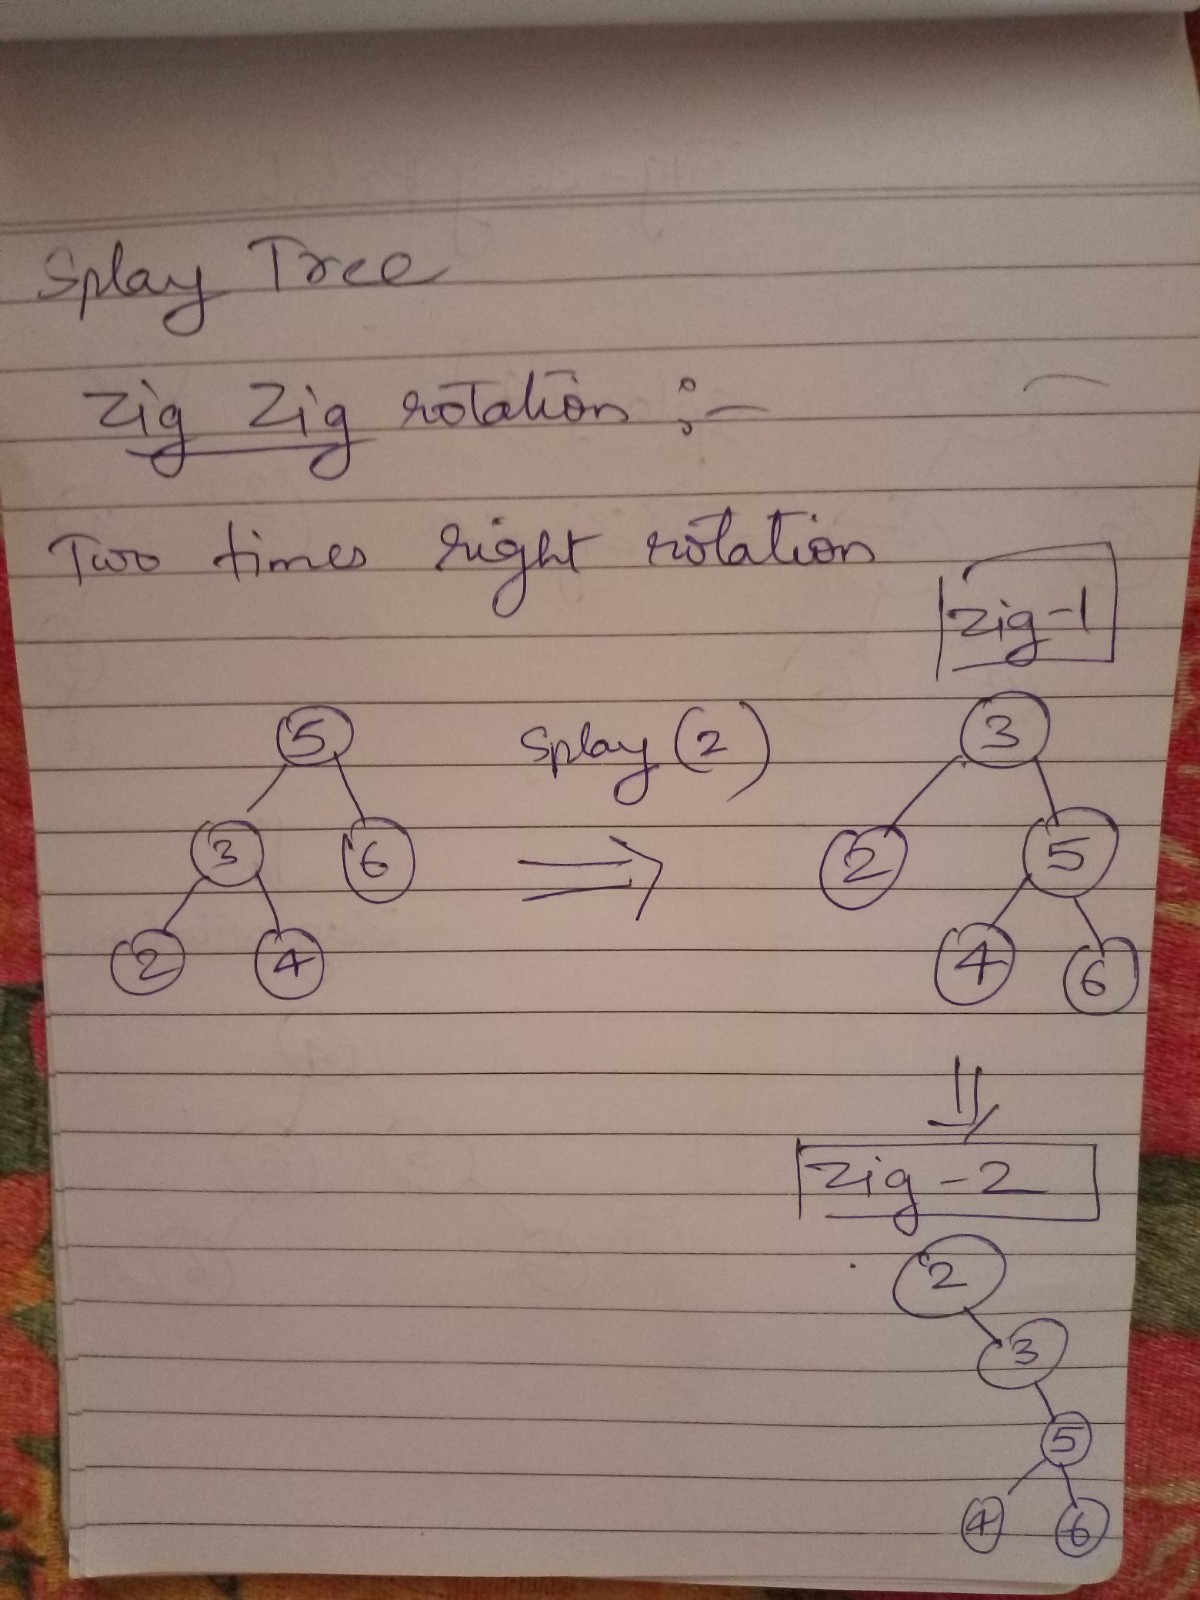 Splay Tree
Zig Zig rotation :-
Two times right rotation
Zig-1
5
Splay (2)
3
3
6
2
5
2
4
4
6
Zig-2
2
3
5
4
6